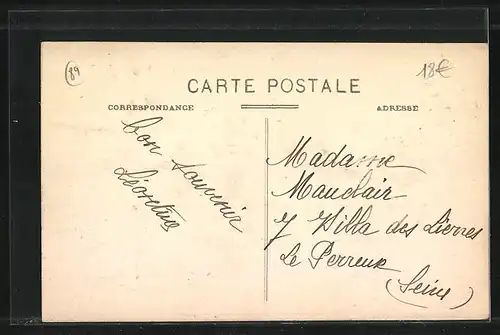 89
18€
CARTE POSTALE
CORRESPONDANCE
ADRESSE
Bon souvenir
Madame
Mauclair
7 Villa des Lierres
Le Perreux
(Seine)